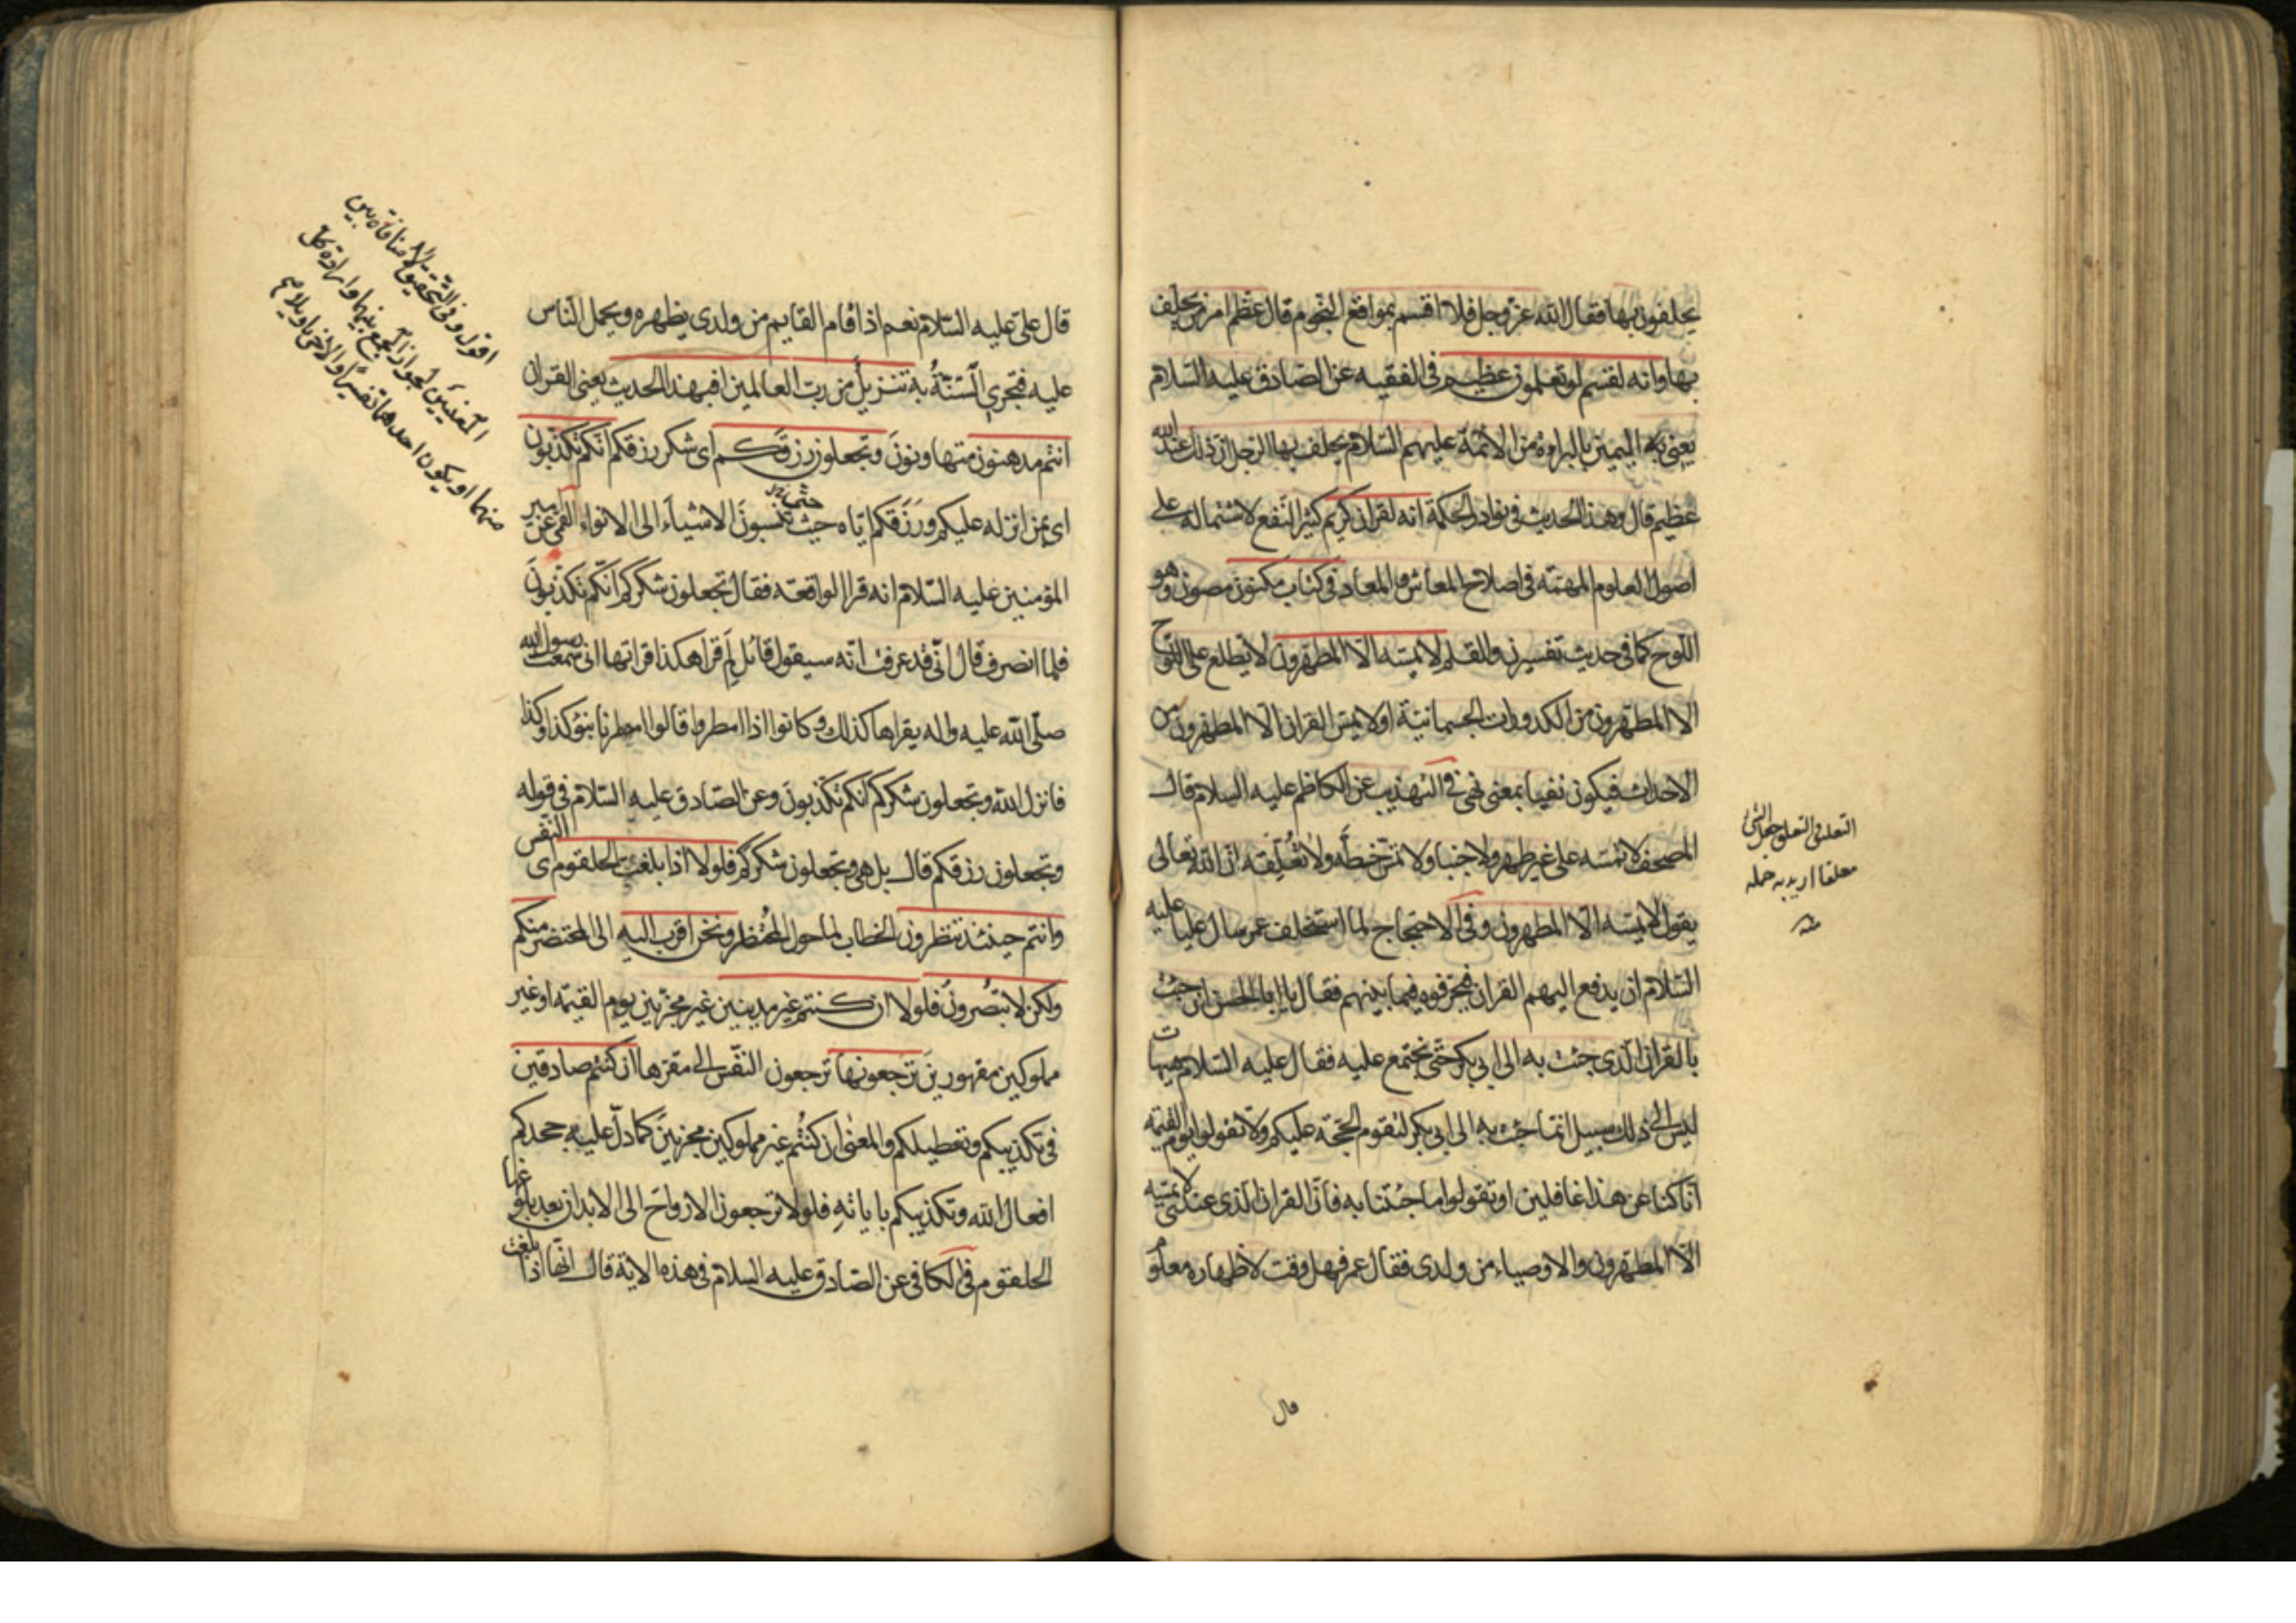 يحلفون بها فقال الله عزّ وجل فلا اقسم بمواقع النّجوم قال عظم امر من يحلف
بها وانه لقسم لو تعلمون عظيم في الفقيه عن الصّادق عليه السّلام
يعني به اليمين بالبراءة من الائمّة عليهم السّلام يحلف بها الرّجل انّ ذلك عند الله
عظيم قال وهذا الحديث في نوادر الحكمة انه لقران كريم كثير النّفع لاشتماله على
اصول العلوم المهمّة في اصلاح المعاش والمعاد في كتاب مكنون مصون وهو
اللّوح كما في حديث تفسير ن والقلم لا يمسّه الّا المطهّرون لا يطلع على اللّوح
الا المطهّرون من الكدورات الجسمانيّة او لا يمسّ القران الّا المطهّرون من
الاحداث فيكون نفيا بمعنى نهى في التهذيب عن الكاظم عليه السلام قال
المصحف لا تمسّه على غير طهر ولا جنبا ولا تمسّ خطّه ولا تعلّقه انّ الله تعالى
يقول لا يمسّه الّا المطهرون وفي الاحتجاج لما استخلف عمر سال عليا عليه
السّلام ان يدفع اليهم القران فيحرّفوه فيما بينهم فقال يا ابا الحسن ان جئت
بالقران الّذي جئت به الى ابي بكر حتّى نجتمع عليه فقال عليه السّلام هيهات
ليس الى ذلك سبيل انّما جئت به الى ابي بكر لتقوم الحجّة عليكم ولا تقولوا يوم القيمة
انّا كنا عن هذا غافلين او تقولوا ما جئتنا به فانّ القران الّذي عندي لا يمسّه
الّا المطهرون والاوصياء من ولدي فقال عمر فهل وقت لاظهاره معلوم
التعليق التعلق جعل الشي
معلقا اريد به حمله
منه
قال
قال عليّ عليه السّلام نعم اذا قام القايم من ولدي يظهره ويحمل النّاس
عليه فتجري السّنّةُ به تنزيلٌ من ربّ العالمين افبهذا الحديث يعني القران
انتم مدهنون متهاونونَ وتجعلون رزقكم اي شكر رزقكم انّكم تكذّبون
اي بمن انزله عليكم ورَزَقكم ايّاه حيث تنسبونَ الاشياء الى الانواء القمي عن امير
المؤمنين عليه السّلام انه قرا الواقعة فقال تجعلون شكركم انّكم تكذّبونَ
فلما انصرف قال انّي قد عرفت انّه سيقول قائل لِمَ قرا هكذا قراتها اني سمعت رسول الله
صلّى الله عليه واله يقراها كذلك وكانوا اذا امطروا قالوا امطرنا بنوء كذا وكذا
فانزل الله وتجعلون شكركم انكم تكذبونَ وعن الصّادق عليه السّلام في قوله
وتجعلون رزقكم قال بل هي وتجعلون شكركم فلولا اذا بلغت الحلقوم اي النّفس
وانتم حينئذ تنظرون الخطاب لمن حول المحتضر ونحن اقرب اليه الى المحتضر منكم
ولكن لا تبصُرونَ فلولا ان كنتم غير مدينين غير مجزيّين يوم القيمة او غير
مملوكين مقهورينَ ترجعونها ترجعون النّفس الى مقرّها ان كنتم صادقين
في تكذيبكم وتعطيلكم والمعنى ان كنتُم غير مملوكين مجزيين كما دلّ عليه جحدكم
افعال الله وتكذيبكم باياتهِ فلولا ترجعون الارواحَ الى الابدان بعد بلوغها
الحلقوم في الكافي عن الصّادق عليه السلام في هذه الاية قال انّها اذا بلغت
اقول وفي التّحقيق لا منافاة بين
المعنيين لجواز الجمع بينهما وارادة كلّ
منهما او يكون احدهما تفسيرًا والاخر تاويلا